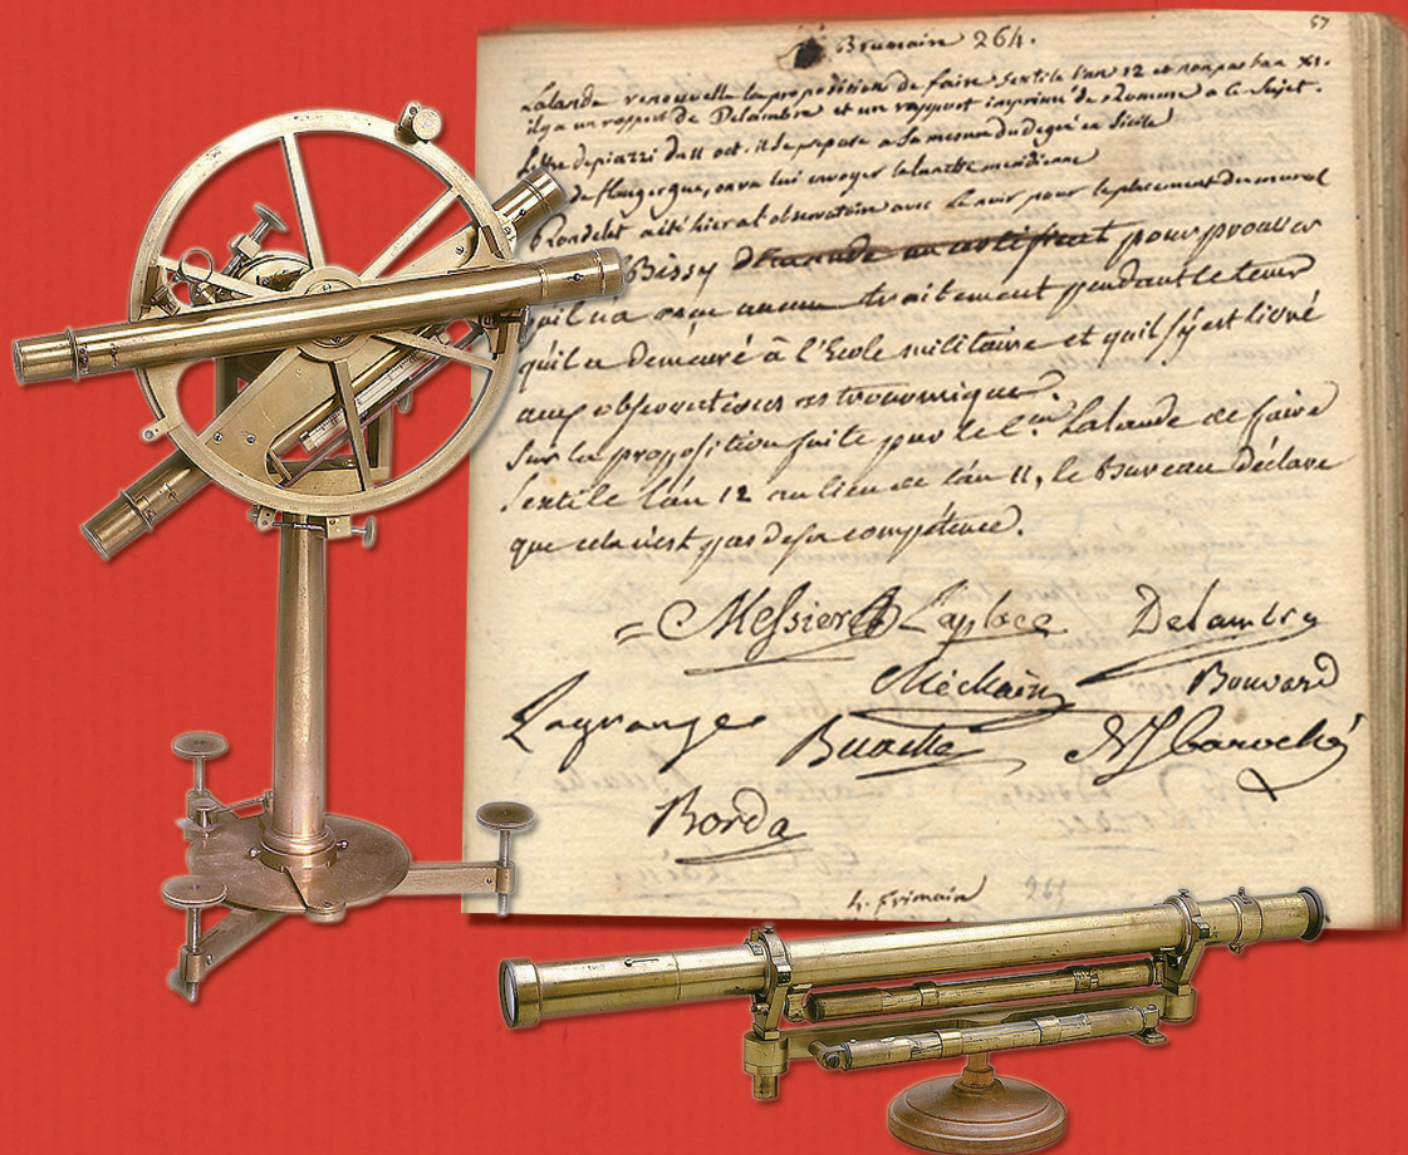 67
Brumaire 264.
Lalande renouvelle la proposition de faire sextile l'an 12 et non pas l'an XI.
il y a un rapport de Delambre et un rapport imprimé de Romme a ce sujet.
Lettre de piazzi du 11 oct. il se prepare a la mesure du degré en Sicile
de flaugergue, on va lui envoyer la lunette meridienne
Rondelet a été hier a l'observatoire avec Lenoir pour le placement du mural
Bissy demande un certificat pour prouver
qu'il n'a reçu aucun traitement pendant le tems
qu'il a demeuré à l'Ecole militaire et quil s'y est livré
aux observations astronomiques.
Sur la proposition faite par le C.en Lalande de faire
sextile l'an 12 au lieu de l'an 11, le Bureau déclare
que cela n'est pas de sa compétence.
Messier Laplace Delambre
Méchain Bouvard
Lagrange Buache
Borda
4. frimaire 265